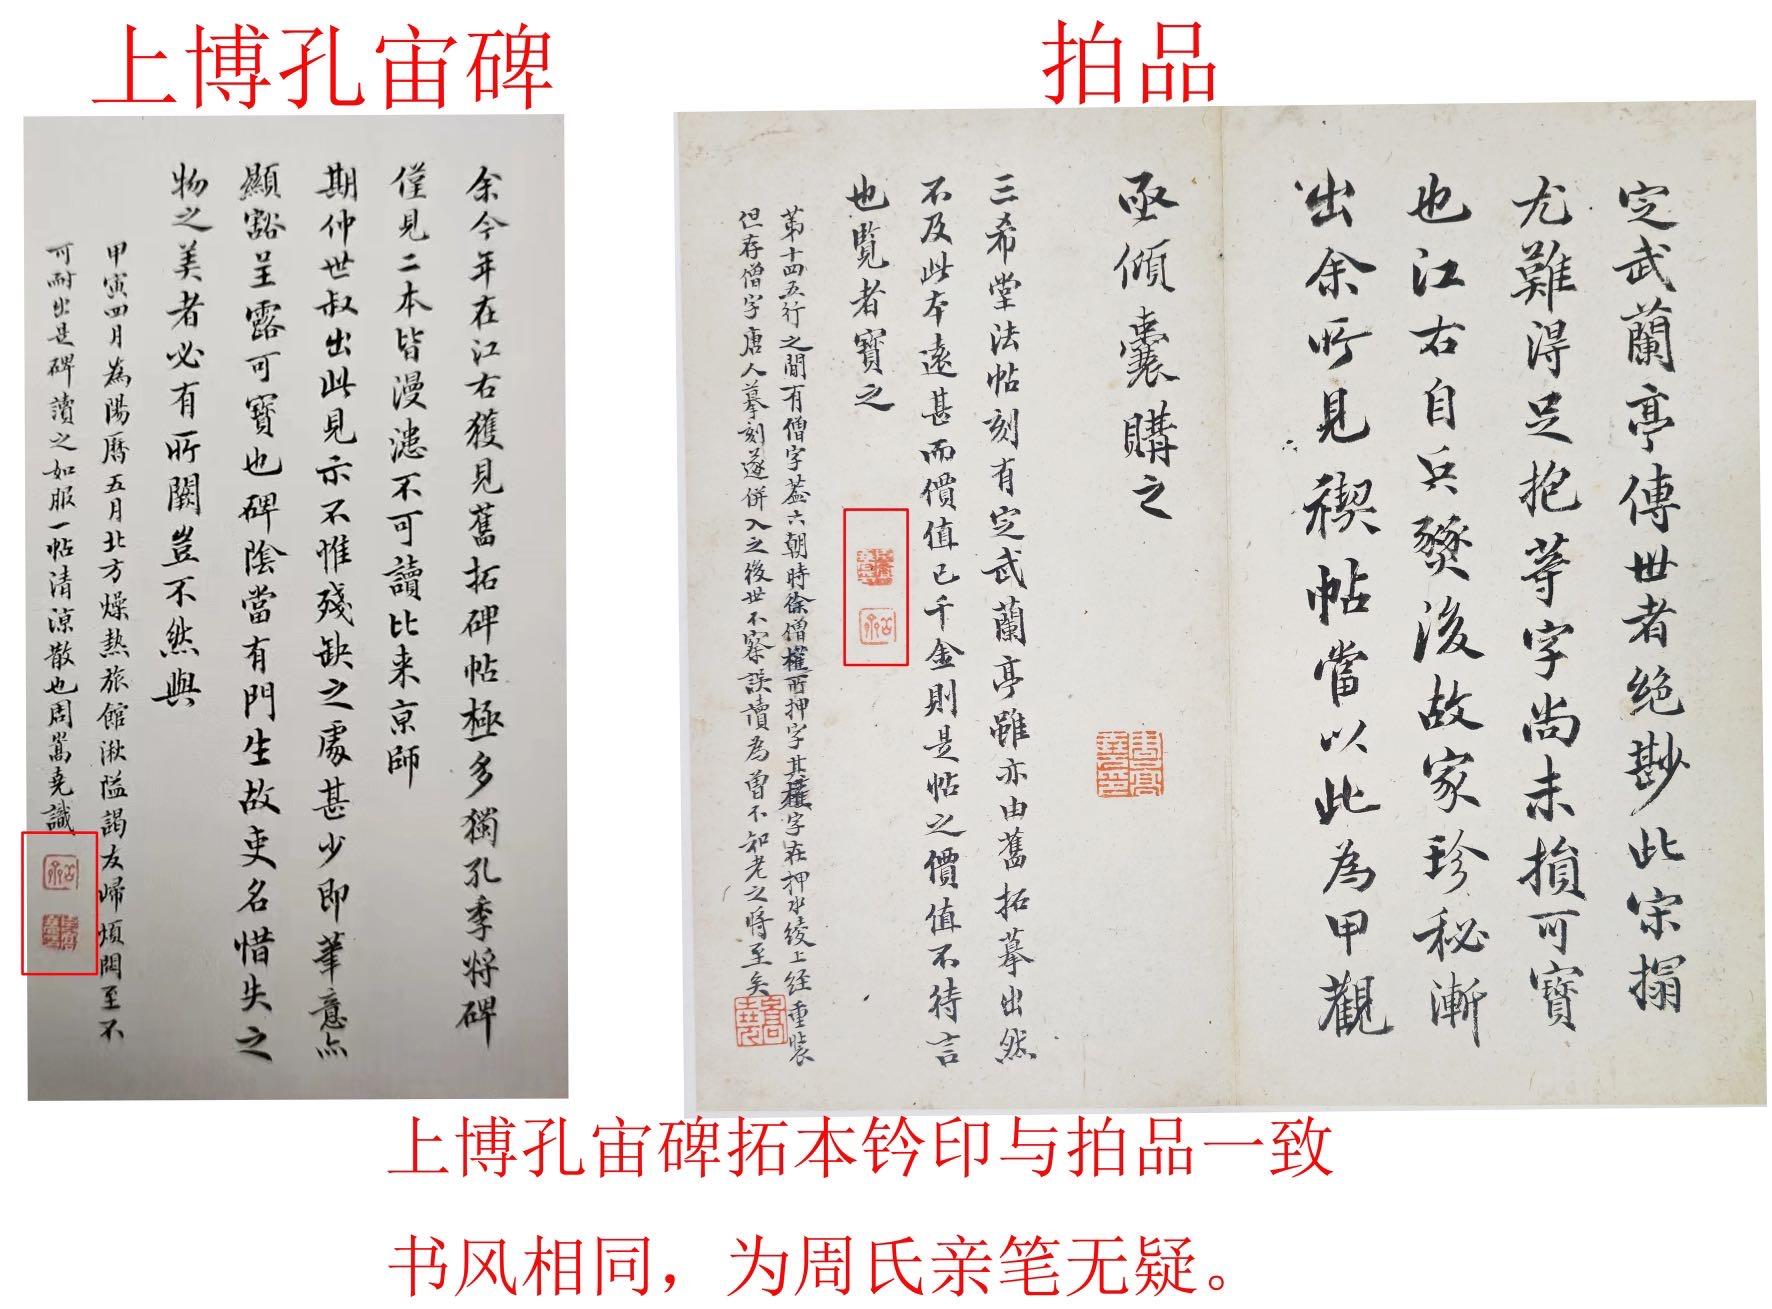 上博孔宙碑
余今年在江右獲見舊拓碑帖極多獨孔季将碑
僅見二本皆漫漶不可讀比来京師
期仲世叔出此見示不惟殘缺之處甚少即筆意亦
顯豁呈露可寶也碑陰當有門生故吏名惜失之
物之美者必有所闕豈不然與
甲寅四月為陽曆五月北方燥熱旅館湫隘謁友歸煩悶至不
可耐出是碑讀之如服一帖清涼散也周嵩堯識
拍品
定武蘭亭傳世者絕尠此宋搨
尤難得足抱等字尚未損可寶
也江右自兵燹後故家珍秘漸
出余所見禊帖當以此為甲觀
亟傾囊購之
三希堂法帖刻有定武蘭亭雖亦由舊拓摹出然
不及此本遠甚而價值已千金則是帖之價值不待言
也覧者寶之
第十四五行之間有僧字蓋六朝時徐僧權所押字其權字在押水綾上经重装
但存僧字唐人摹刻遂併入之後世不察誤讀為曽不知老之將至矣
上博孔宙碑拓本钤印与拍品一致
书风相同，为周氏亲笔无疑。